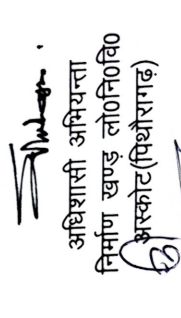 अधिशासी अभियन्ता
निर्माण खण्ड़ लो०नि०वि०
अस्कोट(पिथौरागढ़)